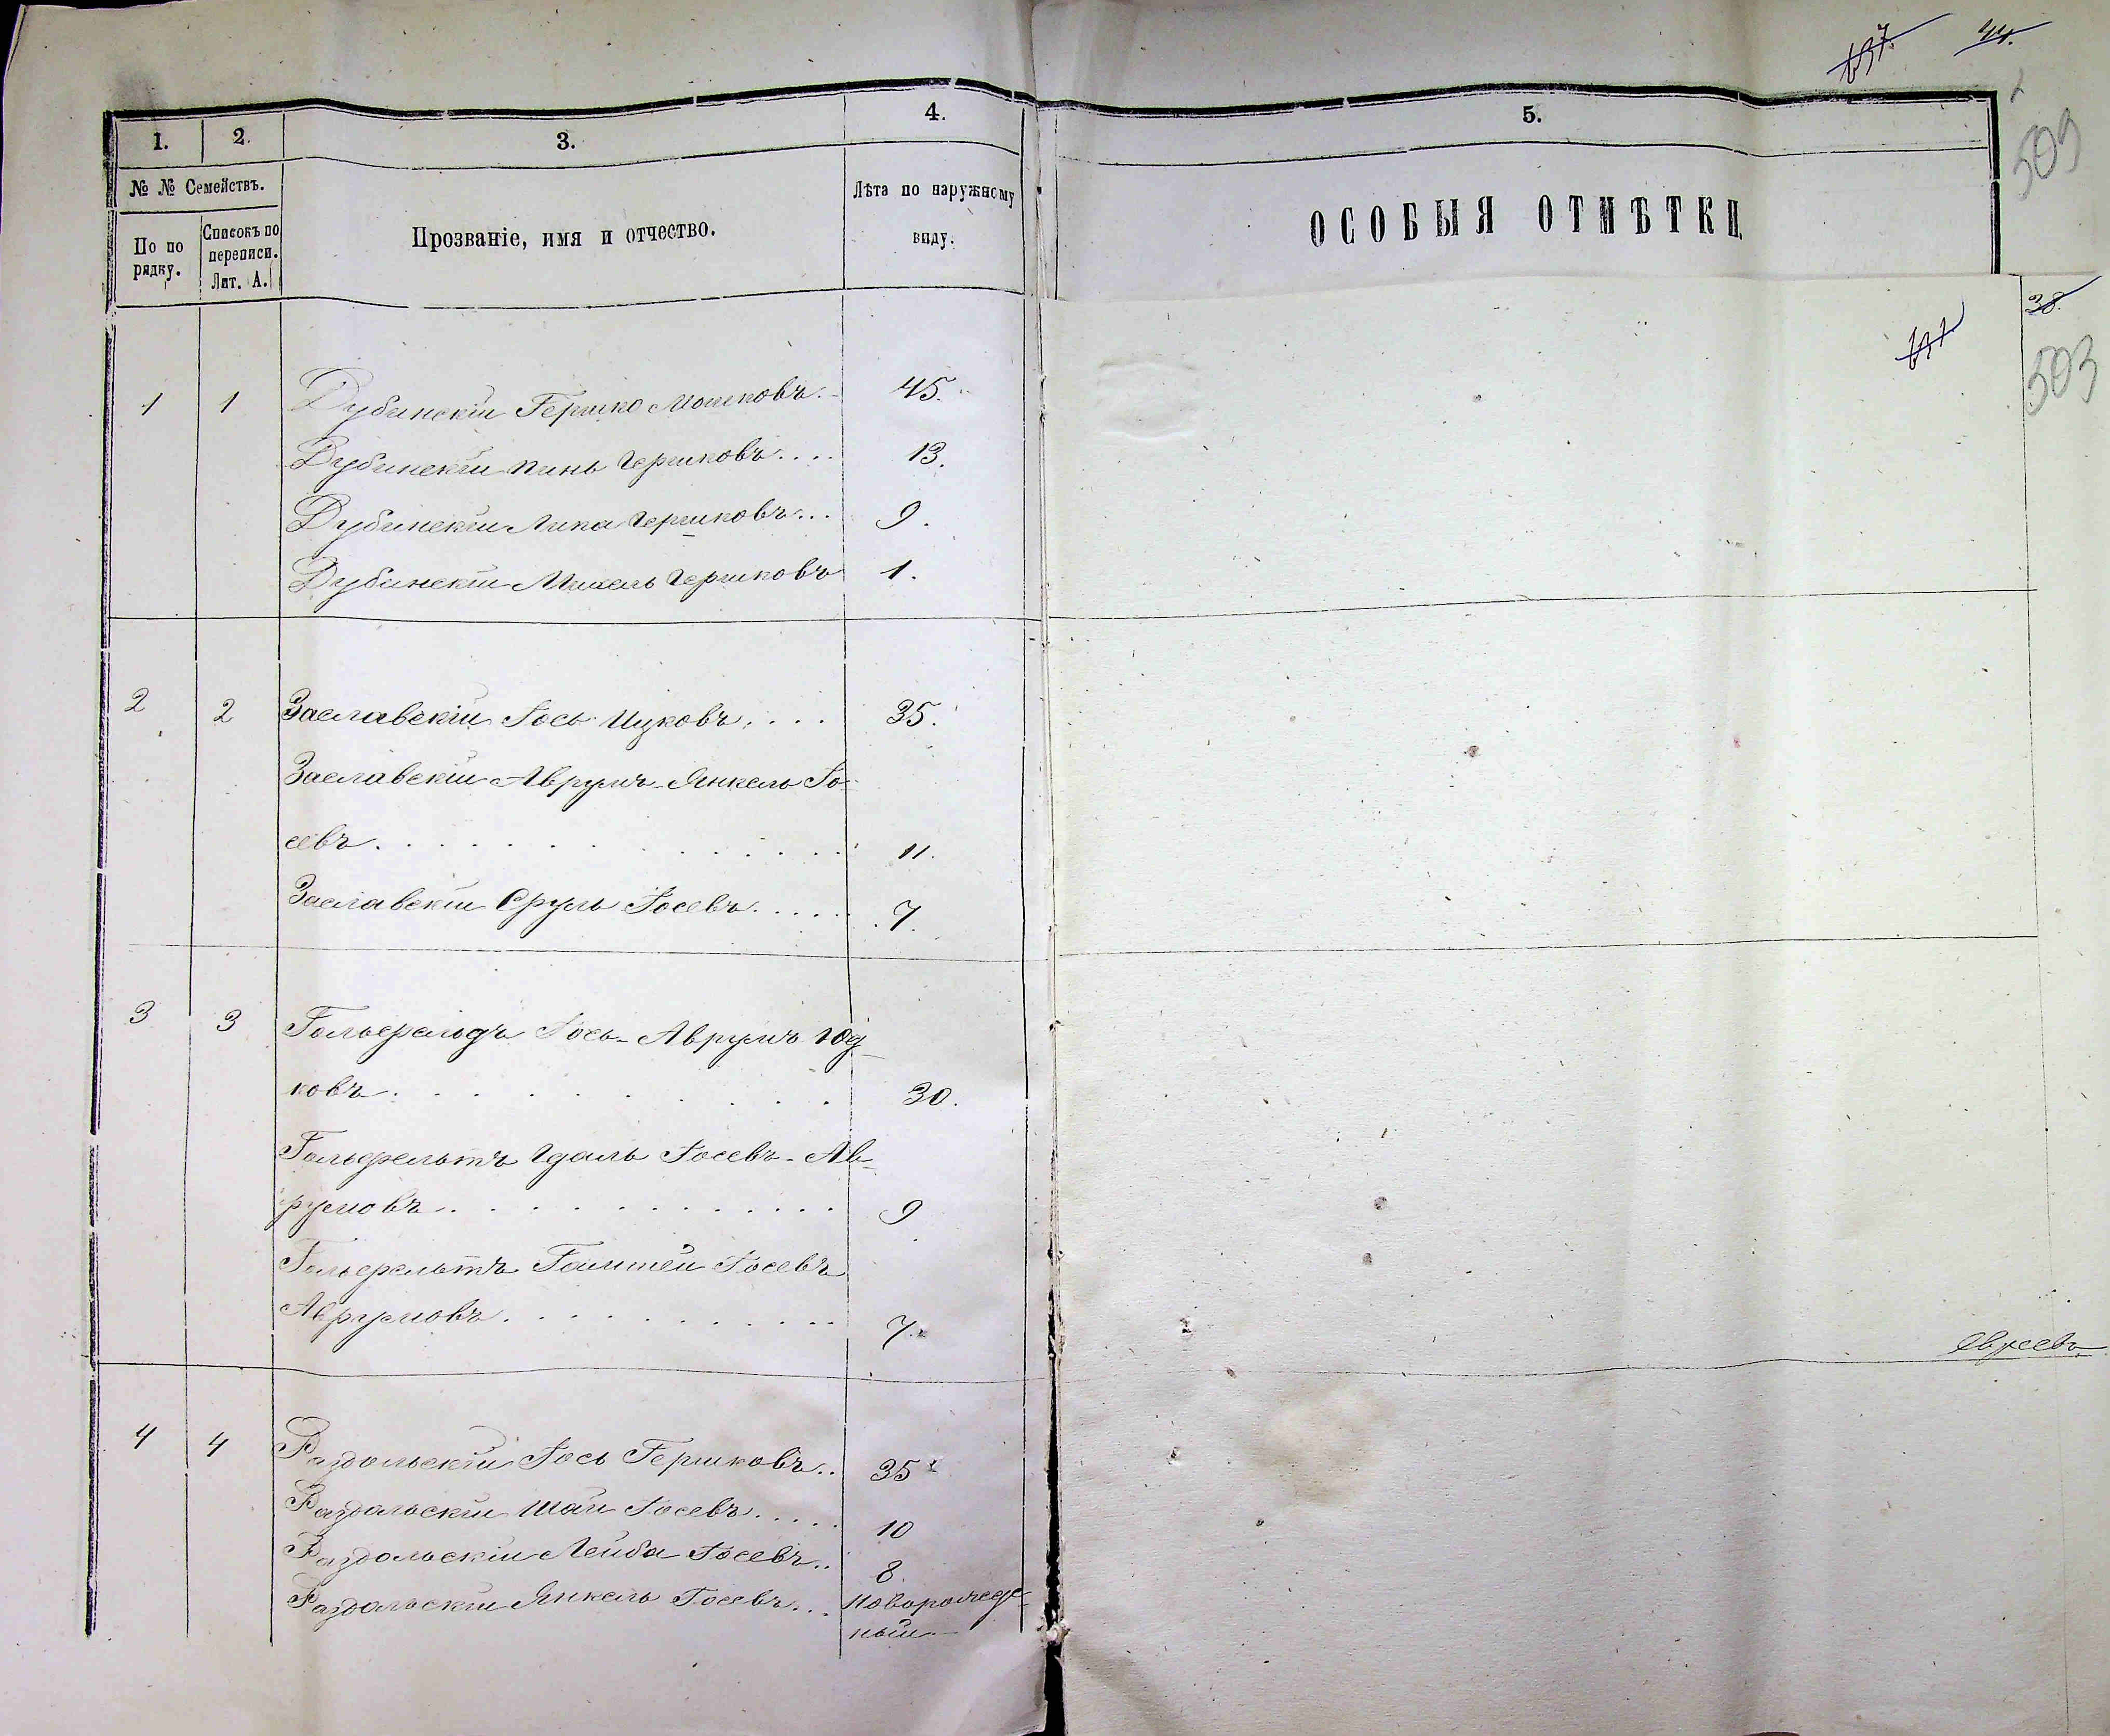 137. 44.
509
1. 2. 3. 4. 5.
№ № Семействъ.
По по
рядку.
Списокъ по
переписи.
Лит. А.
Прозваніе, имя и отчество.
Лѣта по наружному
виду.
ОСОБЫЯ ОТМѢТКИ
38.
503
1 1 Дубинскій Гершко Мошковъ. 45.
Дубинскій Пинь Гершковъ.... 13.
Дубинскій Липа Гершковъ... 9.
Дубинскій Михель Гершковъ 1.
2 2 Заславскій Іось Ицковъ.... 35.
Заславскій Аврумъ-Янкель Іо-
севъ. 11.
Заславскій Сруль Іосевъ..... 7.
3 3 Гольдфельдъ Іось-Аврумъ Юд-
ковъ. 30.
Гольфельтъ Гдаль Іосевъ-Ав-
румовъ. 9
Гольфельтъ Іосевъ
Аврумовъ. 7.
Евреевъ
4 4 Раздольскій Іось Гершковъ.. 35
Раздольскій Шаи Іосевъ..... 10
Раздольскій Лейба Іосевъ.. 8
Раздольскій Янкель Іосевъ... Новорожде-
ный